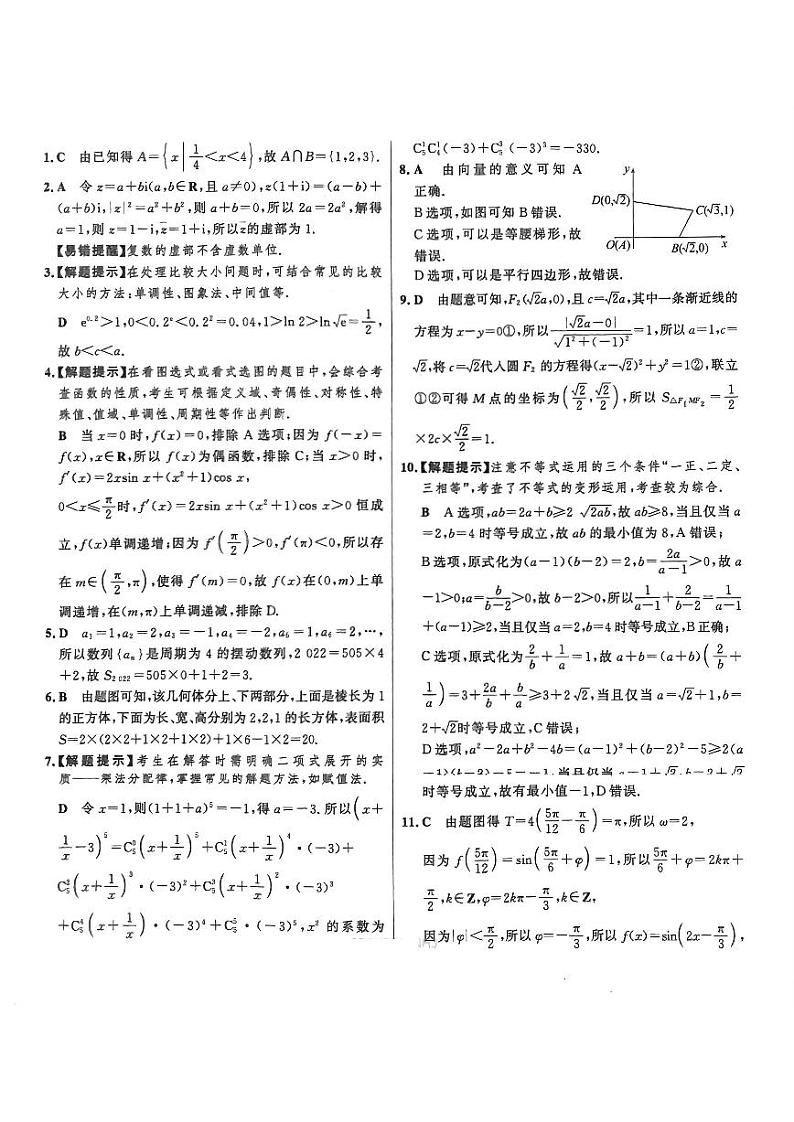 1.C 由已知得A={x|1/4<x<4},故A∩B={1,2,3}.
2.A 令z=a+bi(a,b∈R,且a≠0),z(1+i)=(a-b)+
(a+b)i,|z|²=a²+b²,则a+b=0,所以2a=2a²,解得
a=1,则z=1-i,z̅=1+i,所以z̅的虚部为1.
【易错提醒】复数的虚部不含虚数单位.
3.【解题提示】在处理比较大小问题时,可结合常见的比较
大小的方法:单调性、图象法、中间值等.
D e^0.2>1,0<0.2^e<0.2²=0.04,1>ln 2>ln√e=1/2,
故b<c<a.
4.【解题提示】在看图选式或看式选图的题目中,会综合考
查函数的性质,考生可根据定义域、奇偶性、对称性、特
殊值、值域、单调性、周期性等作出判断.
B 当x=0时,f(x)=0,排除A选项;因为f(-x)=
f(x),x∈R,所以f(x)为偶函数,排除C;当x>0时,
f′(x)=2xsin x+(x²+1)cos x,
0<x≤π/2时,f′(x)=2xsin x+(x²+1)cos x>0恒成
立,f(x)单调递增;因为f′(π/2)>0,f′(π)<0,所以存
在m∈(π/2,π),使得f′(m)=0,故f(x)在(0,m)上单
调递增,在(m,π)上单调递减,排除D.
5.D a₁=1,a₂=2,a₃=-1,a₄=-2,a₅=1,a₆=2,…,
所以数列{aₙ}是周期为4的摆动数列,2 022=505×4
+2,故S₂ ₀₂₂=505×0+1+2=3.
6.B 由题图可知,该几何体分上、下两部分,上面是棱长为1
的正方体,下面为长、宽、高分别为2,2,1的长方体,表面积
S=2×(2×2+1×2+1×2)+1×6-1×2=20.
7.【解题提示】考生在解答时需明确二项式展开的实
质——乘法分配律,掌握常见的解题方法,如赋值法.
D 令x=1,则(1+1+a)⁵=-1,得a=-3.所以(x+
1/x-3)⁵=C₅⁰(x+1/x)⁵+C₅¹(x+1/x)⁴·(-3)+
C₅²(x+1/x)³·(-3)²+C₅³(x+1/x)²·(-3)³
+C₅⁴(x+1/x)·(-3)⁴+C₅⁵·(-3)⁵,x²的系数为
C₅¹C₄¹(-3)+C₅³(-3)³=-330.
8.A 由向量的意义可知A
正确.
B选项,如图可知B错误.
C选项,可以是等腰梯形,故
错误.
D选项,可以是平行四边形,故错误.
y
D(0,√2)
C(√3,1)
O(A)
B(√2,0)
x
9.D 由题意可知,F₂(√2a,0),且c=√2a,其中一条渐近线的
方程为x-y=0①,所以|√2a-0|/√(1²+(-1)²)=1,所以a=1,c=
√2,将c=√2代人圆F₂的方程得(x-√2)²+y²=1②,联立
①②可得M点的坐标为(√2/2,√2/2),所以S△F₁MF₂=1/2
×2c×√2/2=1.
10.【解题提示】注意不等式运用的三个条件“一正、二定、
三相等”,考查了不等式的变形运用,考查较为综合.
B A选项,ab=2a+b≥2√2ab,故ab≥8,当且仅当a
=2,b=4时等号成立,故ab的最小值为8,A错误;
B选项,原式化为(a-1)(b-2)=2,b=2a/(a-1)>0,故a
-1>0;a=b/(b-2)>0,故b-2>0,所以1/(a-1)+2/(b-2)=1/(a-1)
+(a-1)≥2,当且仅当a=2,b=4时等号成立,B正确;
C选项,原式化为2/b+1/a=1,故a+b=(a+b)(2/b+
1/a)=3+2a/b+b/a≥3+2√2,当且仅当a=√2+1,b=
2+√2时等号成立,C错误;
D选项,a²-2a+b²-4b=(a-1)²+(b-2)²-5≥2(a
时等号成立,故有最小值-1,D错误.
11.C 由题图得T=4(5π/12-π/6)=π,所以ω=2,
因为f(5π/12)=sin(5π/6+φ)=1,所以5π/6+φ=2kπ+
π/2,k∈Z,φ=2kπ-π/3,k∈Z,
因为|φ|<π/2,所以φ=-π/3,所以f(x)=sin(2x-π/3),